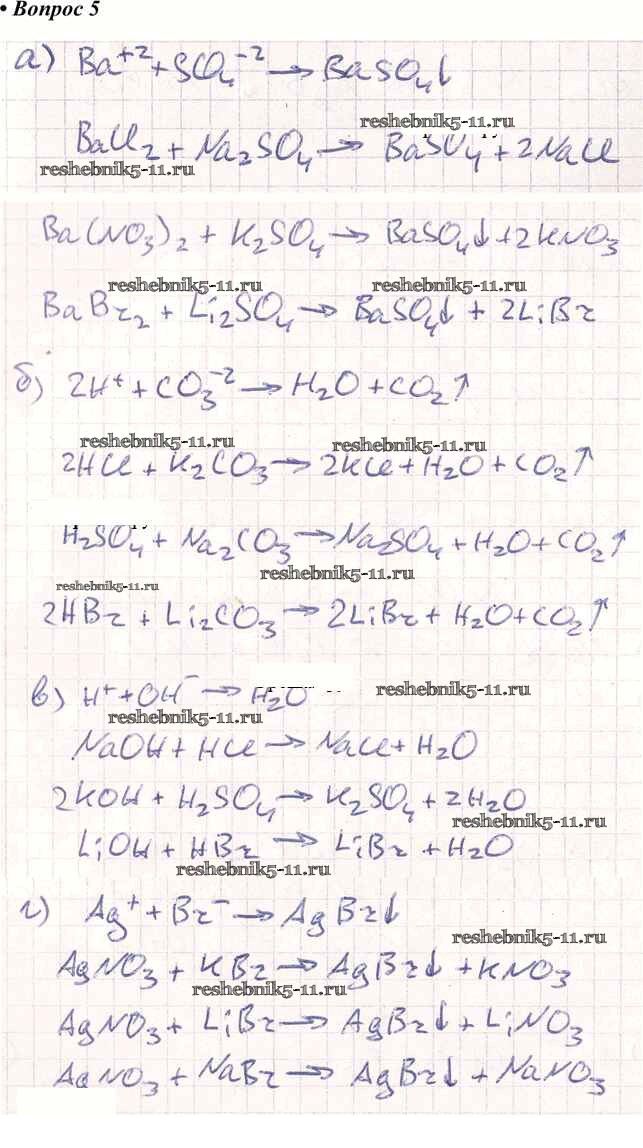 • Вопрос 5
а) Ba⁺² + SO₄⁻² → BaSO₄↓
reshebnik5-11.ru
BaCl₂ + Na₂SO₄ → BaSO₄ + 2NaCl
reshebnik5-11.ru
Ba(NO₃)₂ + K₂SO₄ → BaSO₄↓ + 2KNO₃
reshebnik5-11.ru reshebnik5-11.ru
BaBr₂ + Li₂SO₄ → BaSO₄↓ + 2LiBr
б) 2H⁺ + CO₃⁻² → H₂O + CO₂↑
reshebnik5-11.ru reshebnik5-11.ru
2HCl + K₂CO₃ → 2KCl + H₂O + CO₂↑
H₂SO₄ + Na₂CO₃ → Na₂SO₄ + H₂O + CO₂↑
reshebnik5-11.ru
reshebnik5-11.ru
2HBr + Li₂CO₃ → 2LiBr + H₂O + CO₂↑
в) H⁺ + OH⁻ → H₂O
reshebnik5-11.ru
reshebnik5-11.ru
NaOH + HCl → NaCl + H₂O
2KOH + H₂SO₄ → K₂SO₄ + 2H₂O
reshebnik5-11.ru
LiOH + HBr → LiBr + H₂O
reshebnik5-11.ru
г) Ag⁺ + Br⁻ → AgBr↓
reshebnik5-11.ru
AgNO₃ + KBr → AgBr↓ + KNO₃
reshebnik5-11.ru
AgNO₃ + LiBr → AgBr↓ + LiNO₃
AgNO₃ + NaBr → AgBr↓ + NaNO₃